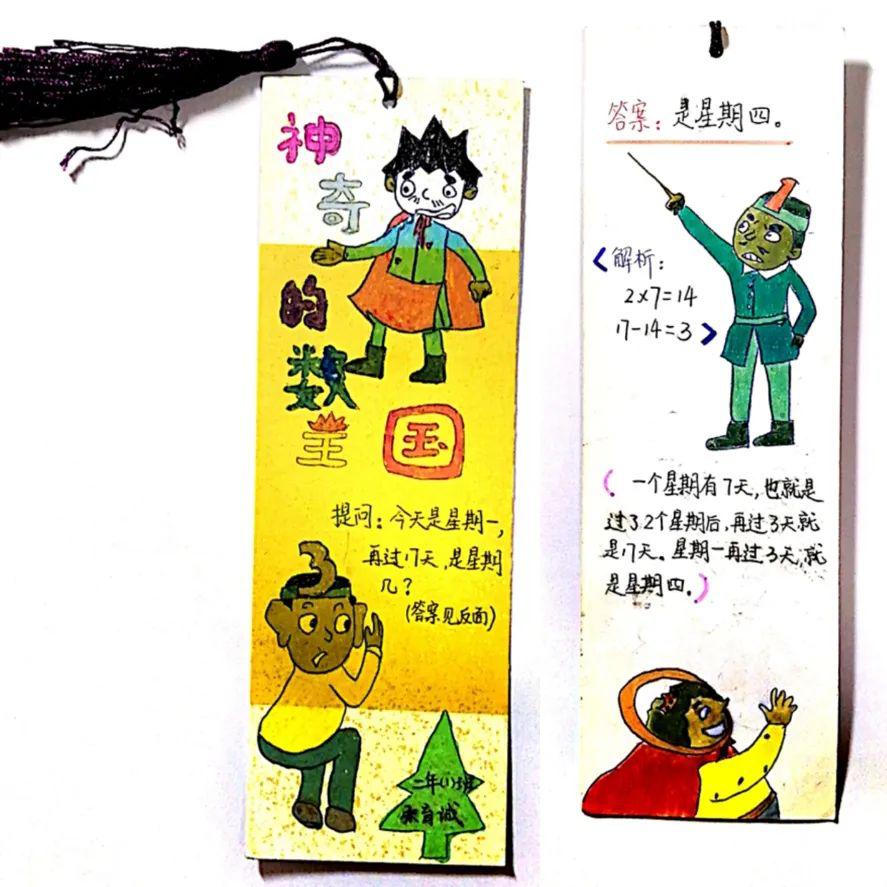 神
奇
的
数
王 国
提问：今天是星期一，
再过17天，是星期
几？
(答案见反面)
二年(1)班
育诚
答案：是星期四。
解析：
2×7=14
17-14=3
( 一个星期有7天，也就是
过了2个星期后，再过3天就
是17天。星期一再过3天，就
是星期四。)